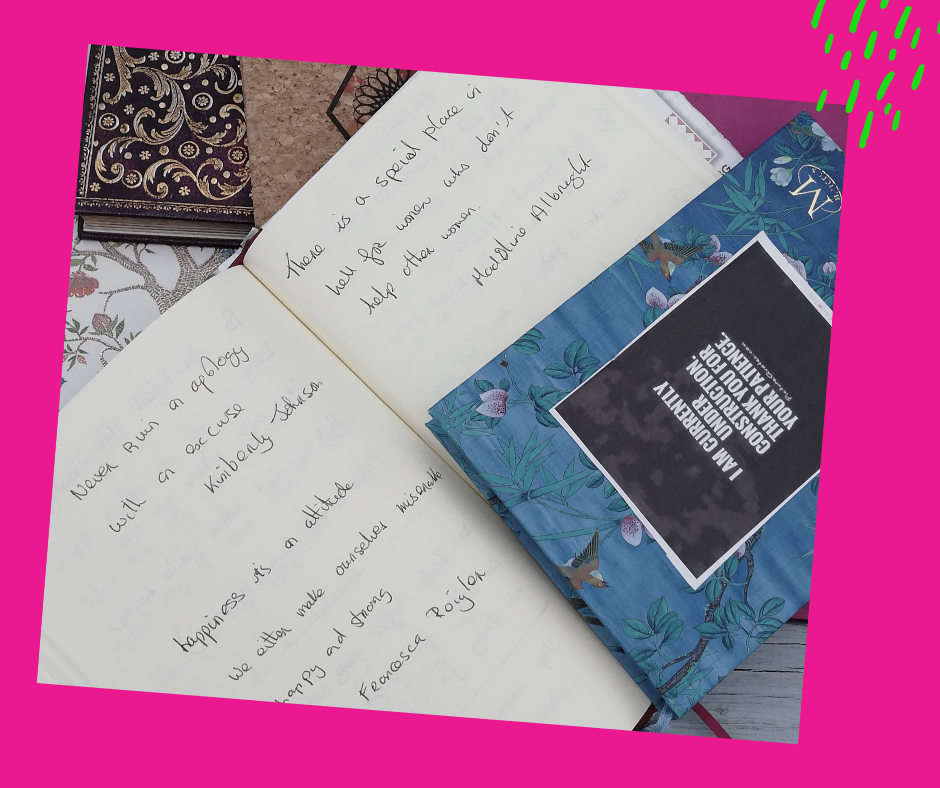 Never Ruin an apology
with an excuse
Kimberly Johnson
happiness is an attitude
We either make ourselves miserable
happy and strong
Francesca Reigler
There is a special place in
hell for women who don't
help other women.
Madeline Albright
M
I AM CURRENTLY
UNDER
CONSTRUCTION.
THANK YOU FOR
YOUR PATIENCE.